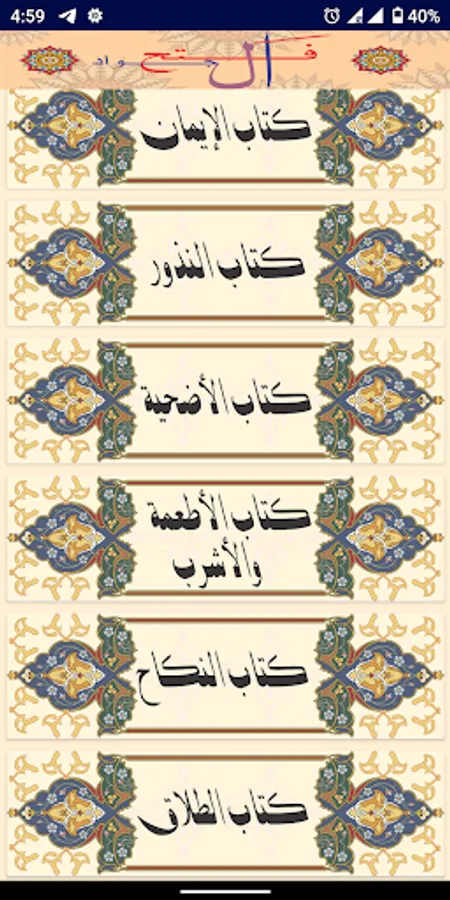 4:59
40%
فتح الجواد
كتاب الإيمان
كتاب النذور
كتاب الأضحية
كتاب الأطعمة
والأشرب
كتاب النكاح
كتاب الطلاق